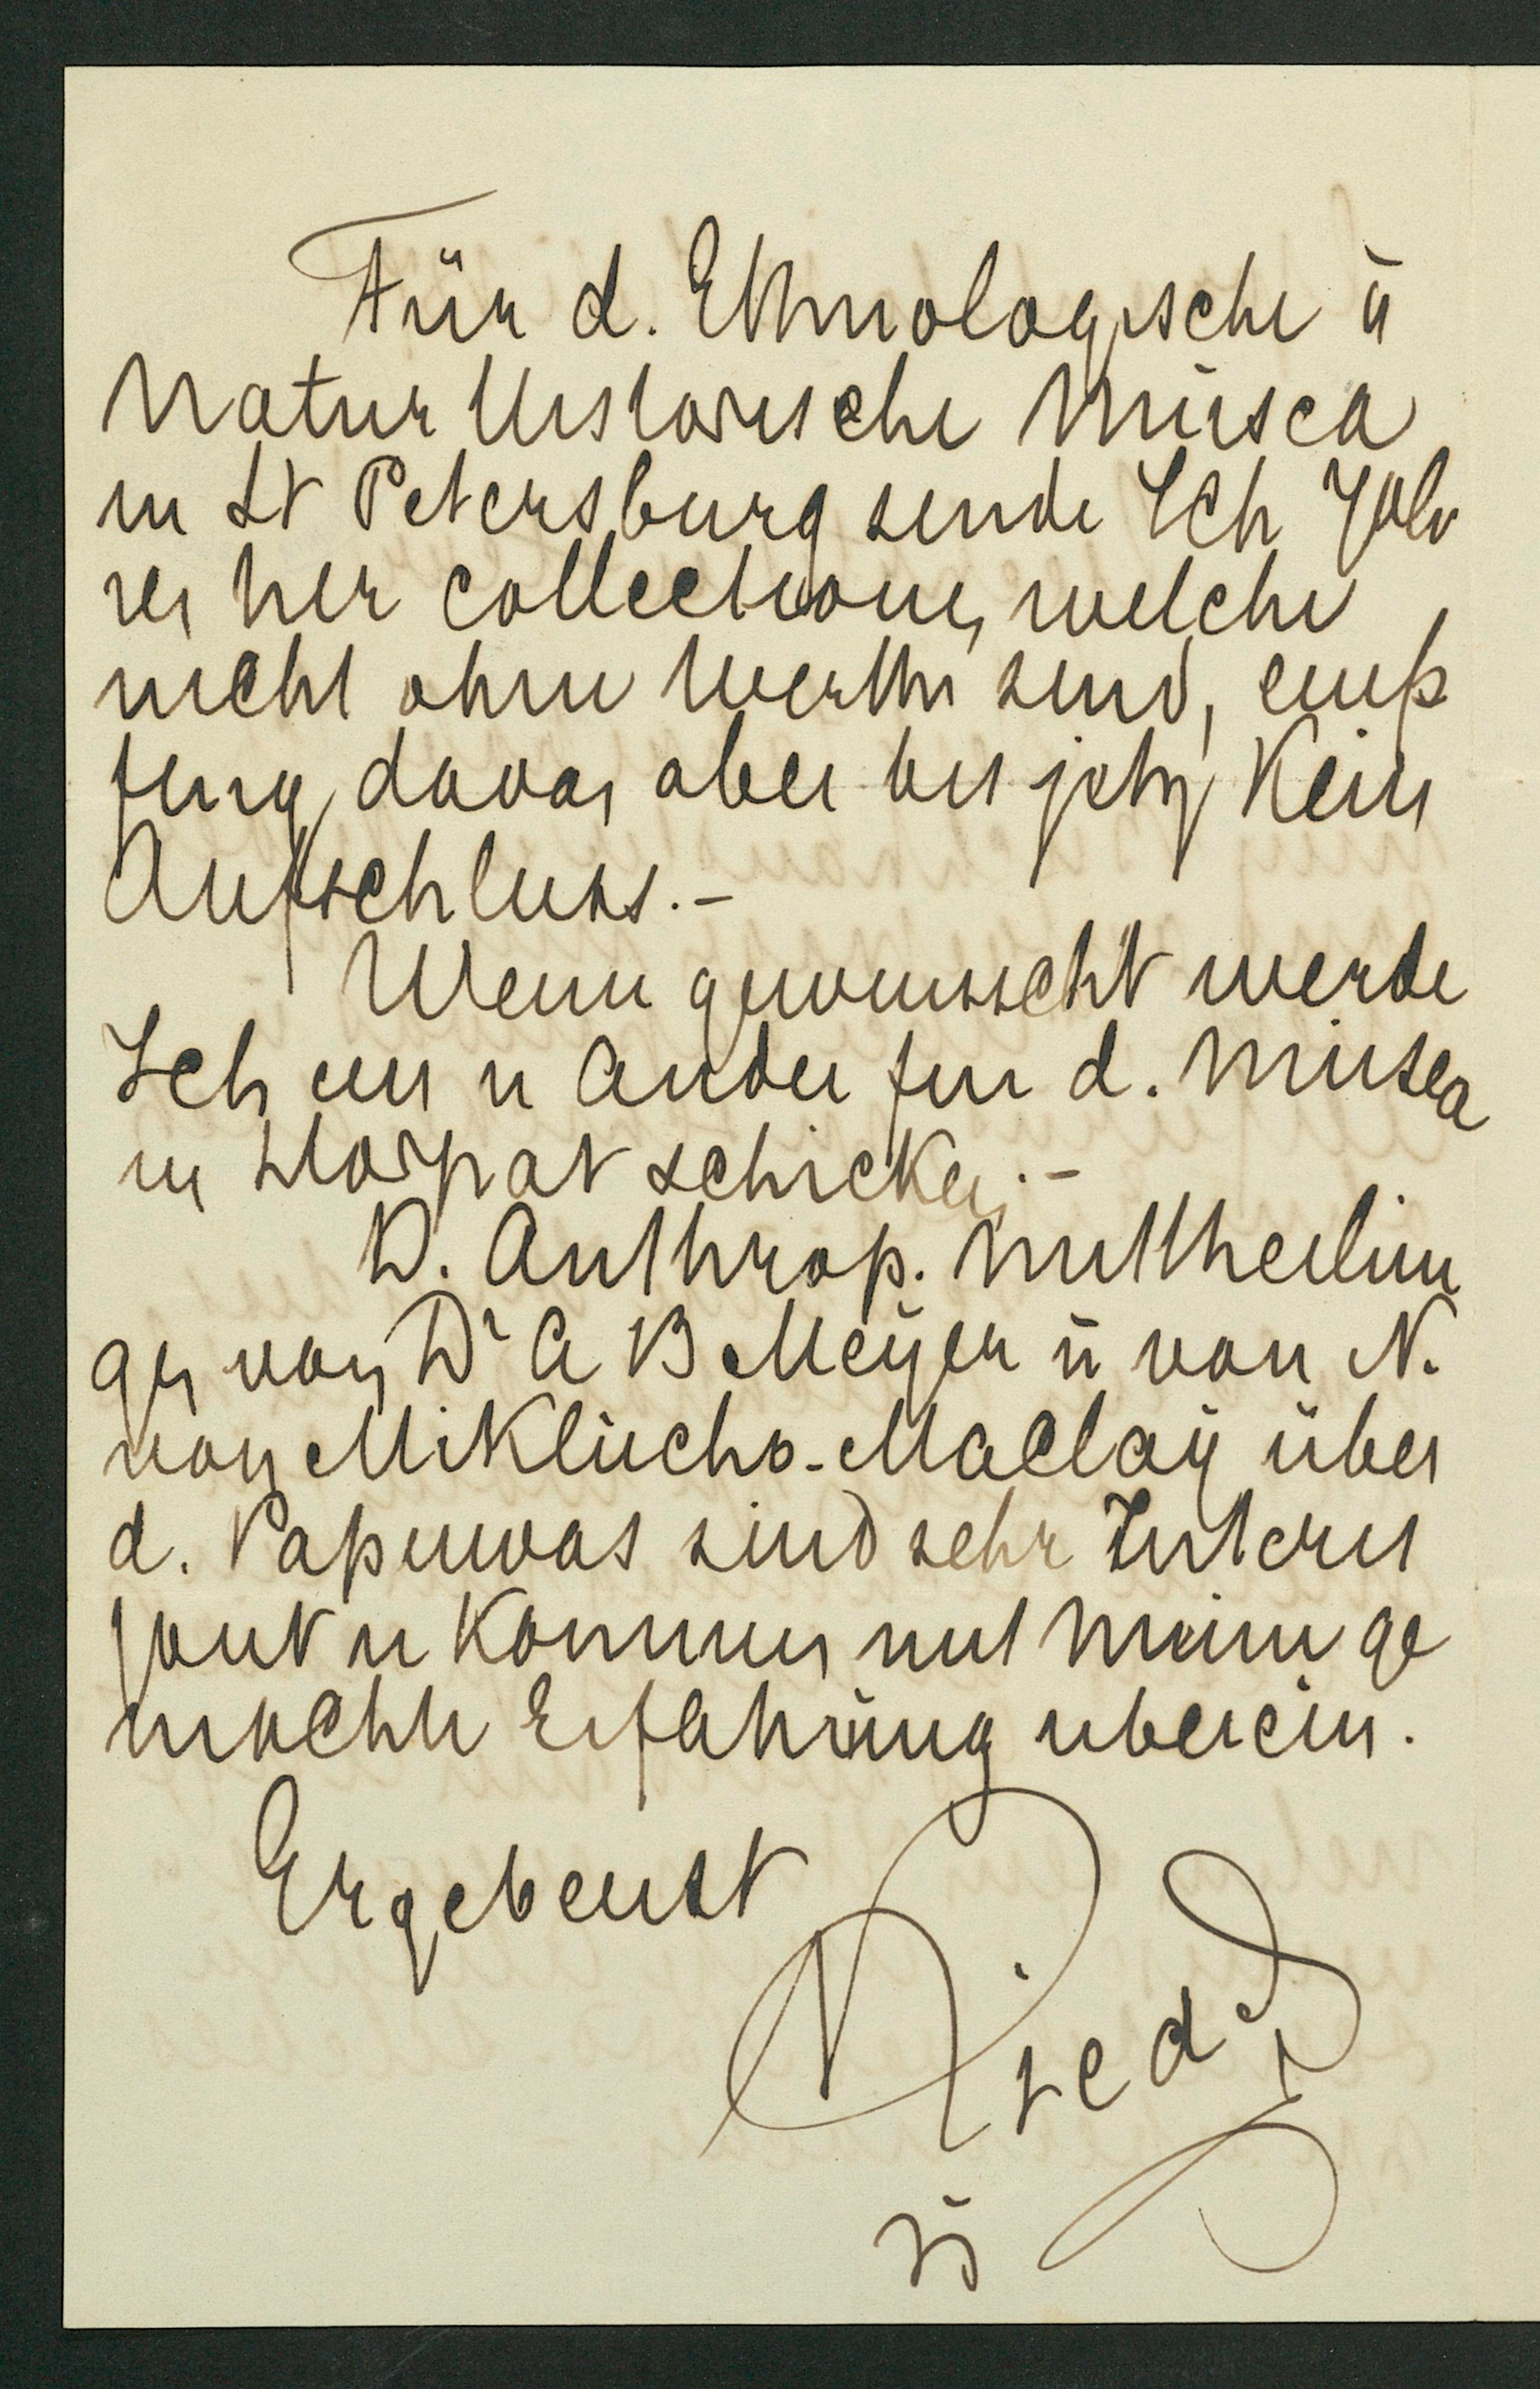 Für d. Ethnologische ü
Natur historische Müsea
in St Petersburg sende Ich
rei her collectionen, welche
nicht ohne Werthe sind, emp
fing davon aber bis jetz Kein
Aufschluss.-
Wenn gewunscht werde
Ich ein u Ander fur d. Müsea
in Dorpat schicken.-
D. Anthrop. Mittheilun
gen von Dr A B Meÿer ü von N.
von Miklücho-Maclaÿ über
d. Papuwas sind sehr Interes
sant u Kommen mit Meine ge
machte Erfahrüng uberein.
Ergebenst
Riedel